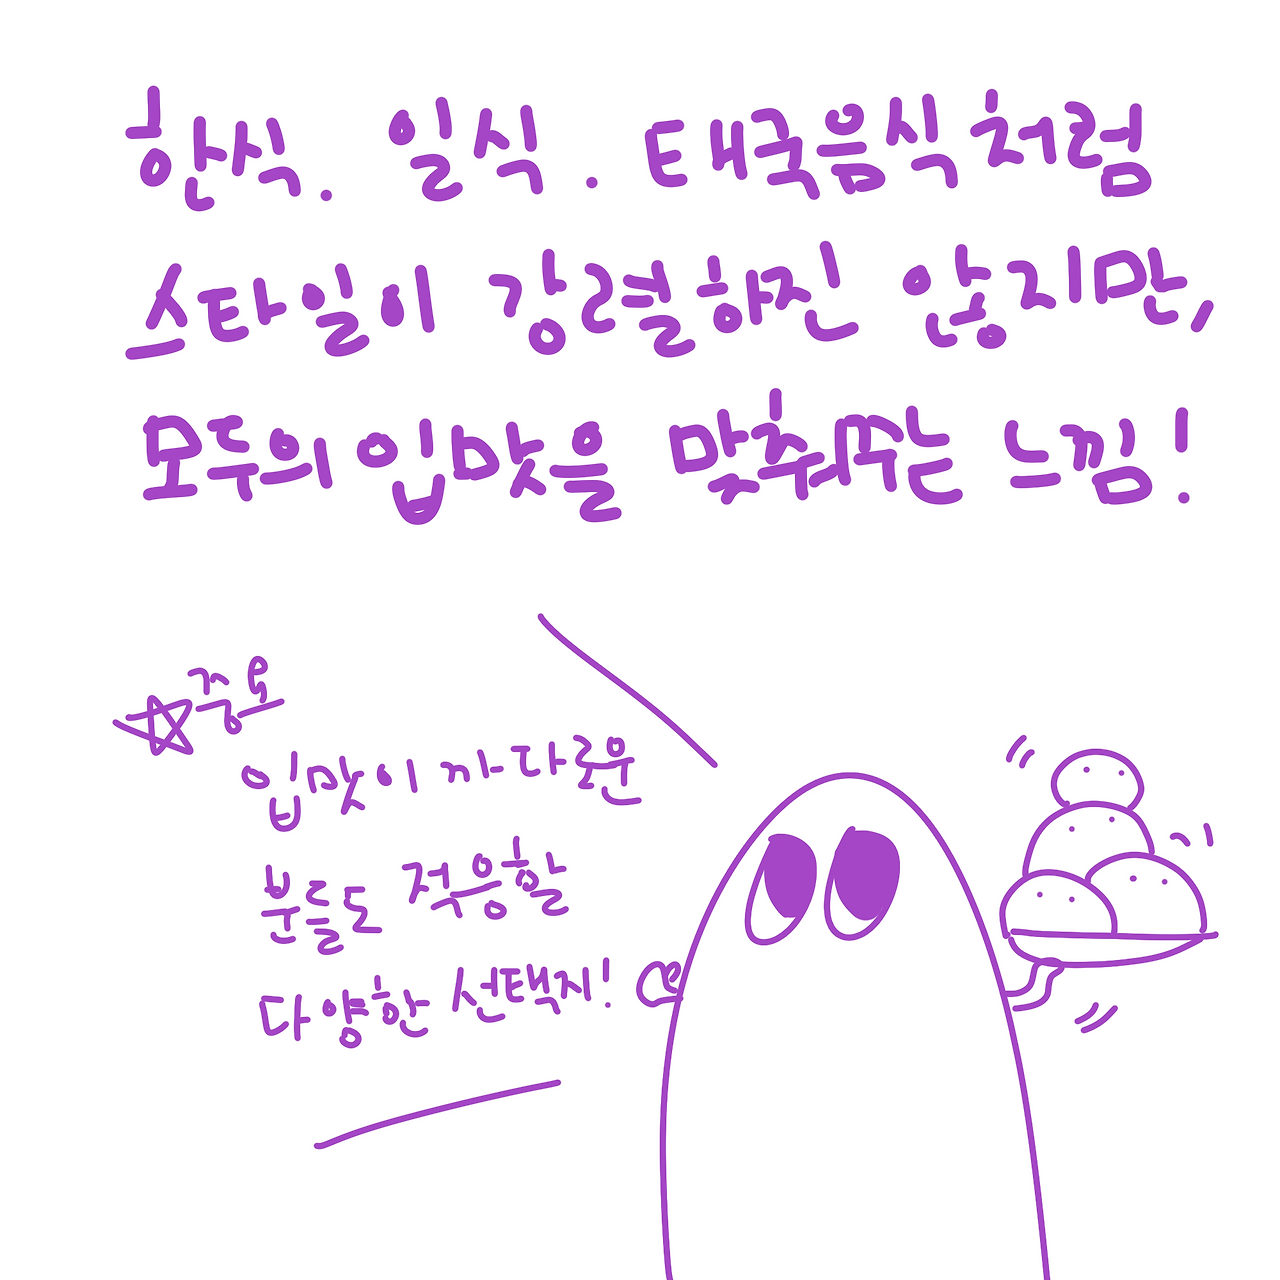 한식. 일식. 태국음식처럼
스타일이 강렬하진 않지만,
모두의 입맛을 맞춰쭈는 느낌!
☆중요
입맛이 까다로운
분들도 적응할
다양한 선택지!